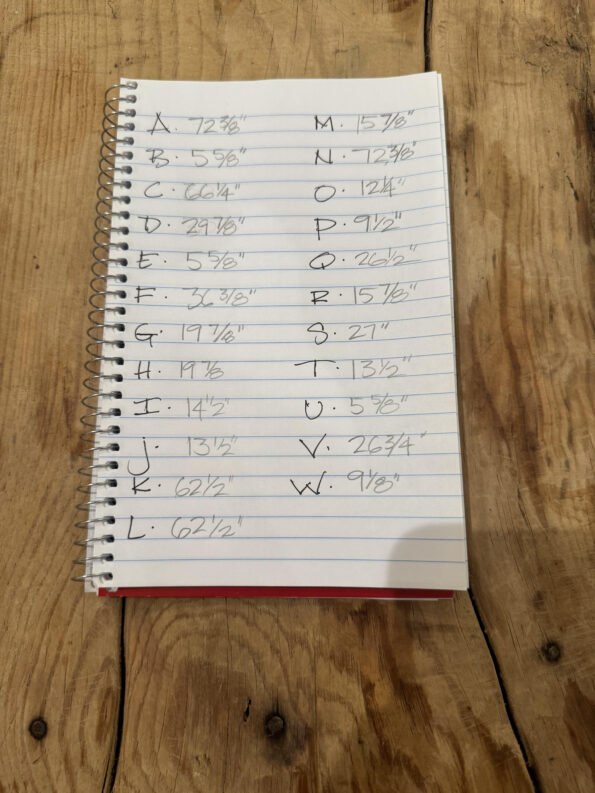 A. 72 3/8"
B. 5 5/8"
C. 66 1/4"
D. 29 7/8"
E. 5 5/8"
F. 36 3/8"
G. 19 7/8"
H. 19 7/8
I. 14 1/2"
J. 13 1/2"
K. 62 1/2"
L. 62 1/2"
M. 15 7/8"
N. 72 3/8"
O. 12 1/4"
P. 9 1/2"
Q. 26 1/2"
R. 15 7/8"
S. 27"
T. 13 1/2"
U. 5 5/8"
V. 26 3/4"
W. 9 1/8"